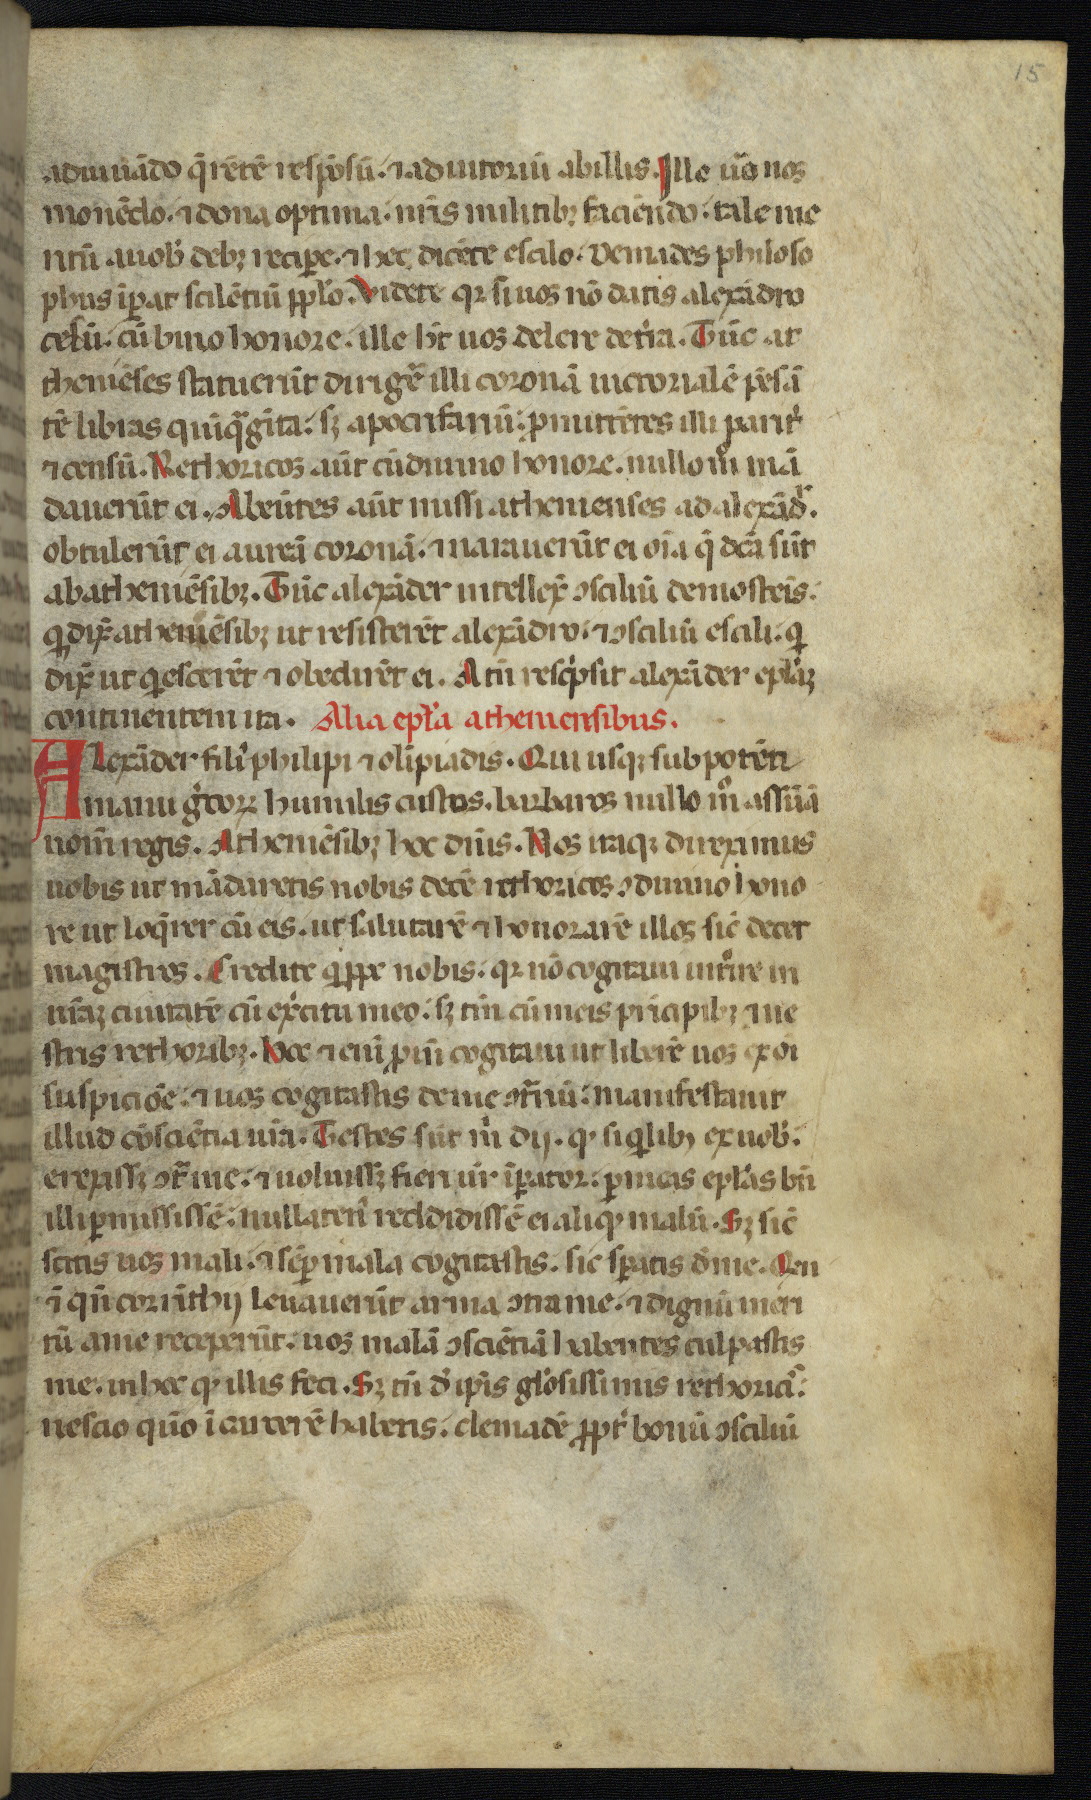 15
adiuuādo q̄rētē respōsū. ⁊ adiutoriū ab illis. Ille ūo nos
monēdo. ⁊ dona optima. nr̄is militibꝫ faciēndo. tale me
ritū auob̾ debꝫ recipe. ⁊ hec dicēte escilo. Demades philoso
phus īpat scilētiū pplo. Videte qꝛ si uos nō datis alexādro
cēsū. cū biuio honore. ille hr̄ uos delere det̾ra. Tūc at
theniēses statuerūt dirigē illi coronā uictorialē pēsā
tē libras quīq̄gīta. sꝫ apocrifariū. pmittētes illi parit̾
⁊ censū. Rethoricos aūt cūdiuino honore. nullo mº mā
dauerūt ei. Abeūtes aūt missi athenienses ad alexādꝝ.
obtulerūt ei aureā coronā. ⁊ narauerūt ei oīa q̄ dcā sūt
ab atheniēsibꝫ. Tūc alexāder intellex̄ ↄsciliū demosteīs.
qͥ dix̄ atheniēsibꝫ ut resisterēt alexādro. ⁊ ↄsciliū escili. qͥ
dix̄ ut qͥescerēt ⁊ obedirēt ei. Atū rescͥpsit alexāder eplāꝫ
continentem ita. Alia epl̄a atheniensibus.
Alexāder fili̾ philipi ⁊ olīpiadis. Qui usqꝫ sub potēti
manu g̾coꝝ humilis custos. barbaros nullo mº assūā
nom̄ regis. Atheniēsibꝫ hec dm̄s. Nos itaqꝫ direximus
uobis ut mādaretis nobis decē rethoricos ↄ diuino hono
re ut loq̄rer cū eis. ut salutarē ⁊ honorarē illos sic̄ decet
magistros. Credite qͥppe nobis. qꝛ nō cogitaui int̾re in
nr̄aꝫ ciuitatē cū ex̾citu meo. sꝫ tm̄ cū meis prīcipibꝫ ⁊ ue
stris rethoribꝫ. Hoc ⁊ enī pm̄ cogitaui ut liberē uos ex oi
suspiciōe. ⁊ uos cogitastis de me ↄt̄riū. manifestauit
illud cōsciētia nr̄a. Testes sūt m̄ dij. qͩ si qͥlibꝫ ex uob̾.
erexissꝫ ↄt̄ me. ⁊ uoluissꝫ fieri ur̄ īpator. p meas epl̾as bn̄
illi pmississē. nullaten̾ reddidissē ei aliqͩ malū. Sꝫ sic̄
scitis uos mali. ⁊ sēp mala cogitastis. sic̄ spatis d̾ me. Cen
ī qn̄ corīthij leuauerūt arma ↄtra me. ⁊ dignū meri
tū a me receperūt. uos malā ↄsciētiā habentes culpastis
me. in hoc qͩ illis feci. Sꝫ tn̄ d̾ ip̄is gl̾osissimis rethoricͥ.
nescio quō ī carcerē habetis. demadē ppt̾ bonū ↄsciliū